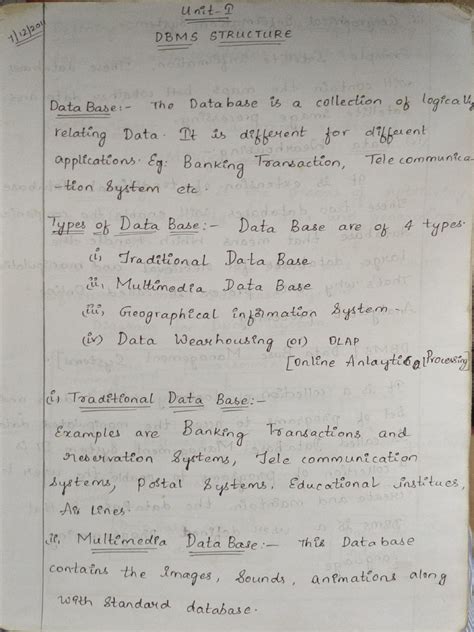 Unit-I
7/12/2011
DBMS STRUCTURE
Data Base:- The Database is a collection of logically
relating Data. It is different for different
applications. Eg: Banking Transaction, Tele communica-
-tion System etc.
Types of Data Base:- Data Base are of 4 types.
(i) Traditional Data Base
ii, Multimedia Data Base
iii, Geographical information System.
(iv) Data Wearhousing (or) OLAP
[Online Anlaytical Processing]
(i) Traditional Data Base:-
Examples are Banking Transactions and
reservation Systems, Tele communication
Systems, Postal Systems. Educational institues,
Air lines.
ii, Multimedia Data Base:- This Database
contains the Images, Sounds, animations along
with Standard database.